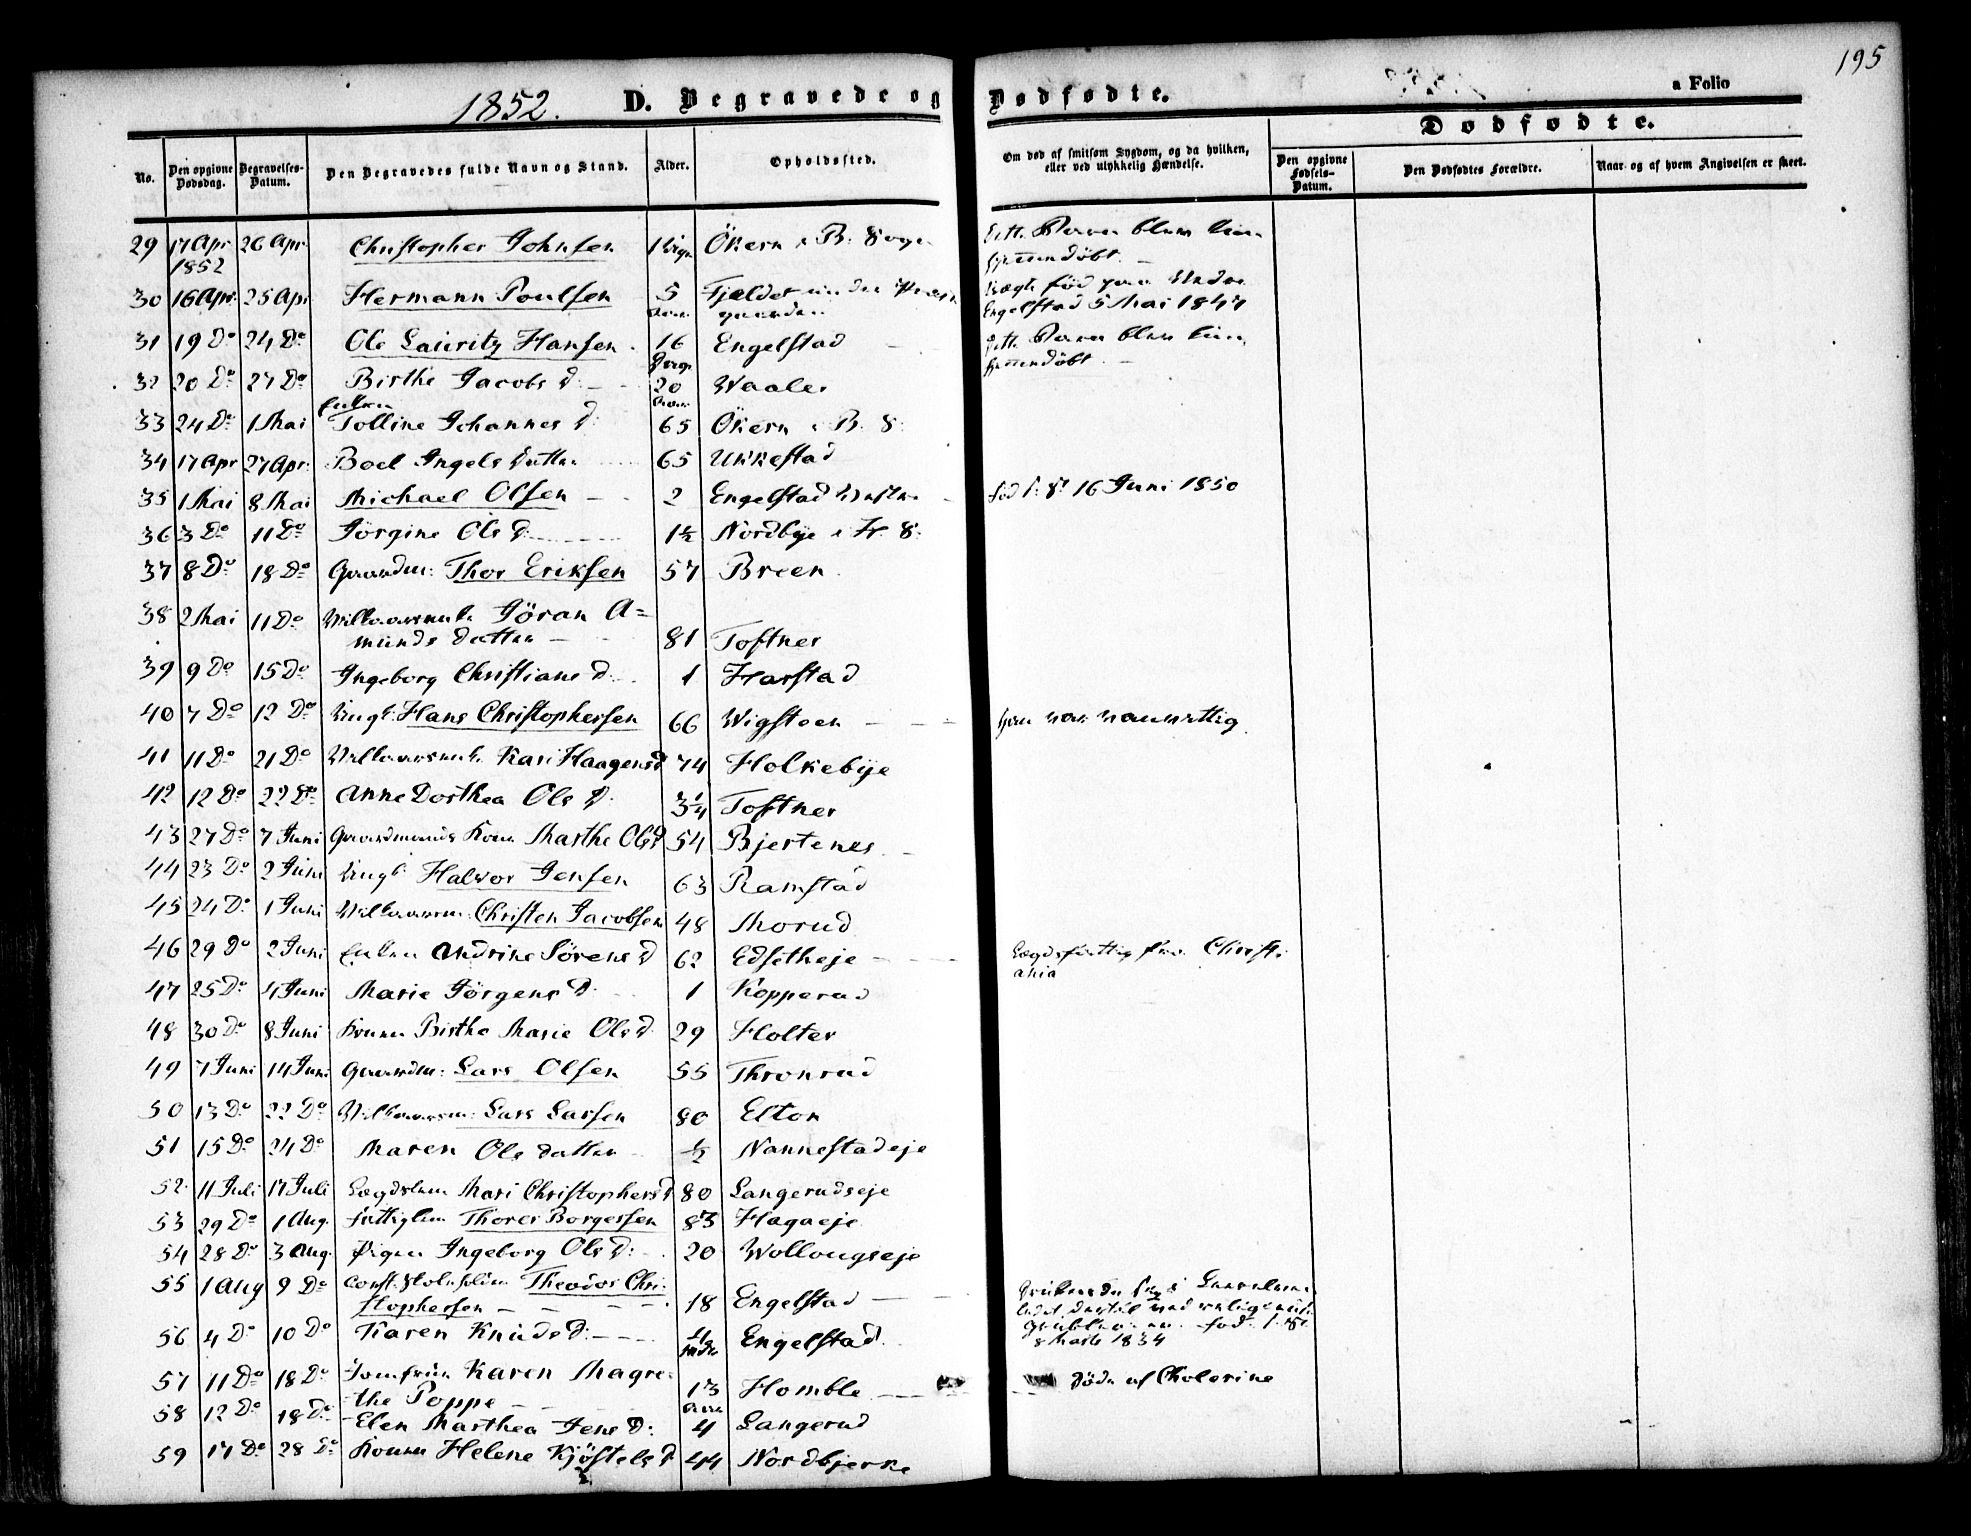 195
1852. D. Begravede og Dødfødte.
a Folio
Dødfødte.
No. Den opgivne Dødsdag. Begravelses-Datum. Den Begravedes fulde Navn og Stand. Alder. Opholdssted. Om død af smitsom Sygdom, og da hvilken, eller ved ulykkelig Hændelse. Den opgivne Fødsels-Datum. Den Dødfødtes Forældre. Naar og af hvem Angivelsen er skeet.
29 17 Apr 26 Apr Christopher Johnsen 1 Økern B: Sogn
1852 hjemmedøbt
30 16 Apr 25 Apr Hermann Poulsen 5 Fjeldet
Engelstad 5 Mai 1847
31 19 Do 24 Do Ole Lauritz Hansen 16 Engelstad
Dage hjemmedøbt
32 20 Do 27 Do Birthe Jacobs d: 20 Waaler
Enken
33 24 Do 1 Mai Tolline Johannes d: 65 Økern i B: S:
34 17 Apr 27 Apr: Boel Ingels datter 65 Ukkestad
35 1 Mai 8 Mai Michael Olsen 2 Engelstad fød 16 Juni 1850
36 3 Do 11 Do Jörgine Ols d. 1½ Nordbye i H: S:
37 8 Do 18 Do Gaardm: Thor Eriksen 57 Breen
38 2 Mai 11 Do Jöran A=
munds datter 81 Toftner
39 9 Do 15 Do Ingeborg Christians d. 1 Harstad
40 7 Do 12 Do Hans Christophersen 66 Wigsteen han var vanvittig
41 11 Do 21 Do Kari Haagens d 74 Holkebye
42 12 Do 22 Do Anne Dorthea Ols d. 3¼ Toftner
43 27 Do 7 Juni Gaardmands Kone Marthe Ols d 54 Bjertenes
44 23 Do 2 Juni Halvor Jensen 63 Ramstad
45 24 Do 1 Juni Christen Jacobsen 48 Morud
46 29 Do 2 Juni Enken Andrine Sörens d 62 Edsetheje Lægdsfattig fra Christi
ania
47 25 Do 4 Juni Marie Jörgens d. 1 Kopperud
48 30 Do 8 Juni Konen Birthe Marie Ols d 29 Holter
49 7 Juni 14 Juni Gaardm: Lars Olsen 55 Thronrud
50 13 Do 22 Do Lars Larsen 80 Elton
51 15 Do 24 Do Maren Ols datter ½ Nannestadeje
52 11 Juli 17 Juli Lægdslem Mari Christophers d 80 Langerudseje
53 29 Do 1 Aug. Fattiglem Thorer Borgersen 83 Hagaeje
54 28 Do 3 Aug. Pigen Ingeborg Ols d: 20 Wollougseje
55 1 Aug 9 Do Theodor Chri-
stophersen 18 Engelstad
56 4 Do 10 Do Karen Knuds d: Engelstad
8 Marts 1834
57 11 Do 18 Do Jomfrue Karen Magre-
the Poppe 13 Homble døde af Cholerine
58 12 Do 18 Do Elen Marthea Jens d: 4 Langerud
59 17 Do 28 Do Konen Helene Kjöstels d 44 Nordbjerke